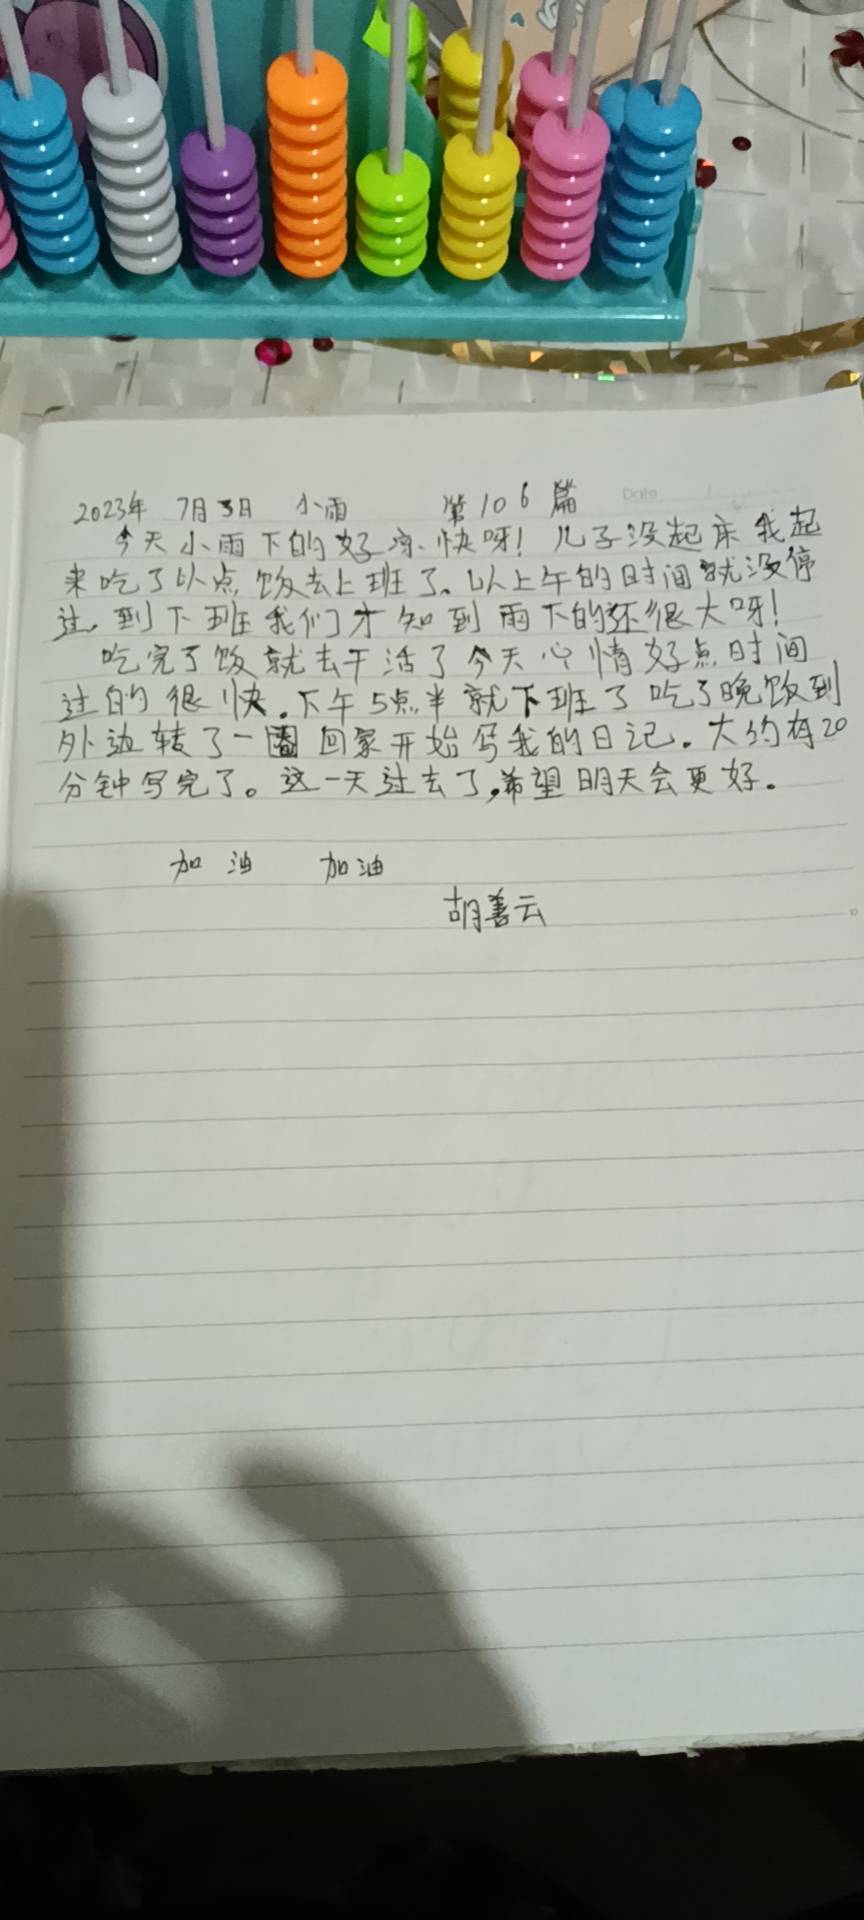 Date
2023年 7月5日 小雨 第106篇
今天小雨下的好凉快呀！儿子没起床我起
来吃了以点饭去上班了。以上午的时间就没停
过。到下班我们才知到雨下的还很大呀！
吃完了饭就去干活了今天心情好点时间
过的很快。下午5点半就下班了吃了晚饭到
外边转了一圈回家开始写我的日记。大约有20
分钟写完了。这一天过去了，希望明天会更好。
加油 加油
胡善云